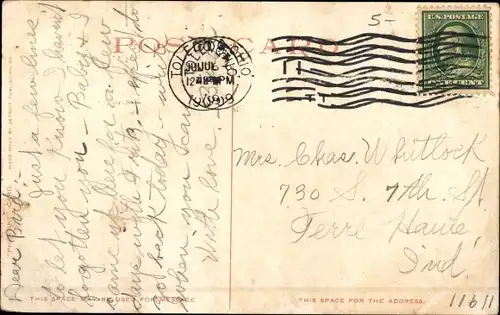 POST CARD
5-
TOLEDO, OHIO
30 JUL
12 PM
1909
U.S. POSTAGE
ONE CENT
Dear
Just a few lines
to let you know I haven't
forgotten you - Baby & I
came up here for a few
days with
go back today -
when you can
With love.
Mrs. Chas. Whitlock
730 S. 7th St
Terre Haute
Ind.
11611
THIS SPACE MAY BE USED FOR MESSAGE
THIS SPACE IS FOR THE ADDRESS.